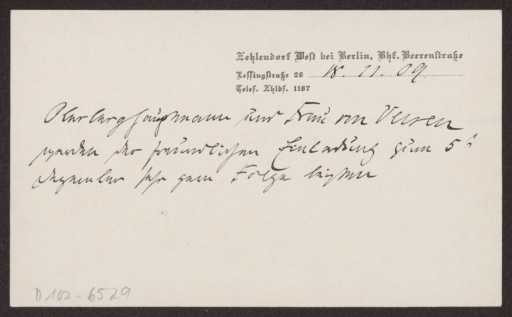 Zehlendorf West bei Berlin, Bhf. Beerenstraße
Lessingstraße 26 18. 11. 09.
Telef. Zhldf. 1187
Oberberghauptmann und Frau von Velsen
werden der freundlichen Einladung zum 5t
Dezember sehr gern Folge leisten
D 102-6529